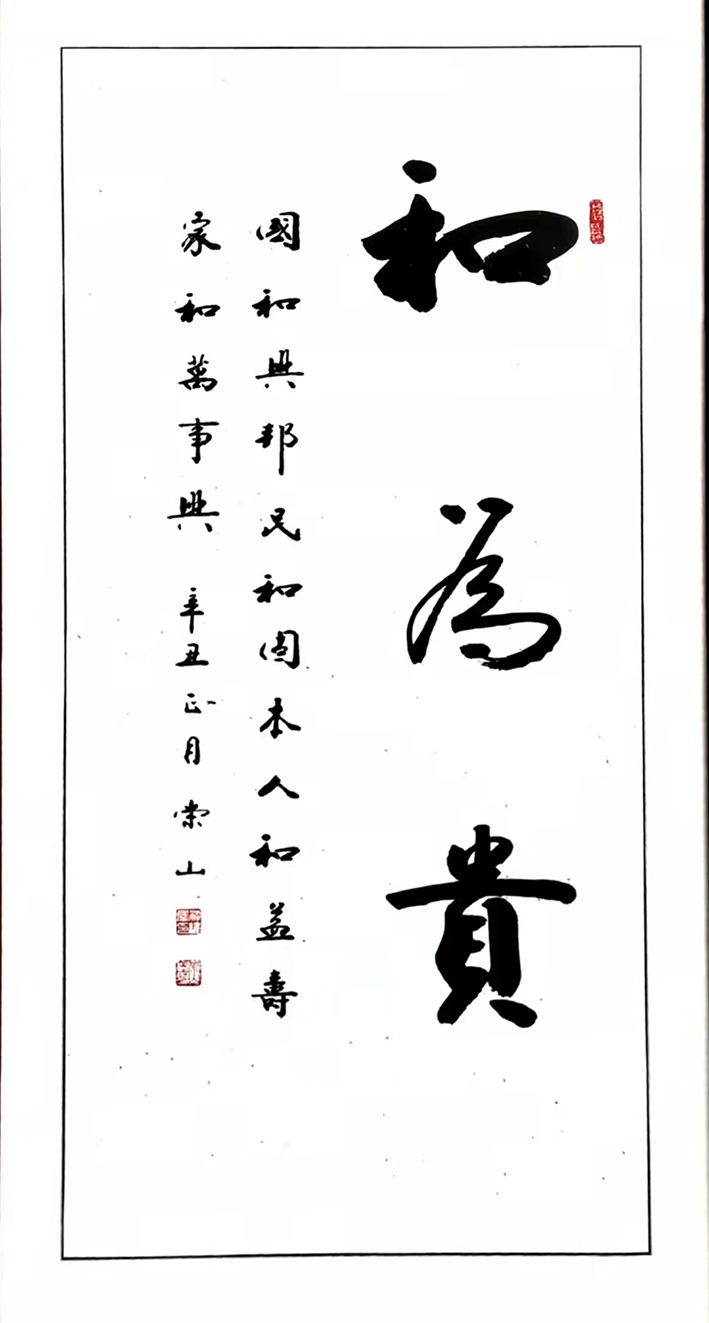 和為貴
國和興邦民和固本人和益壽
家和萬事興 辛丑正月 崇山